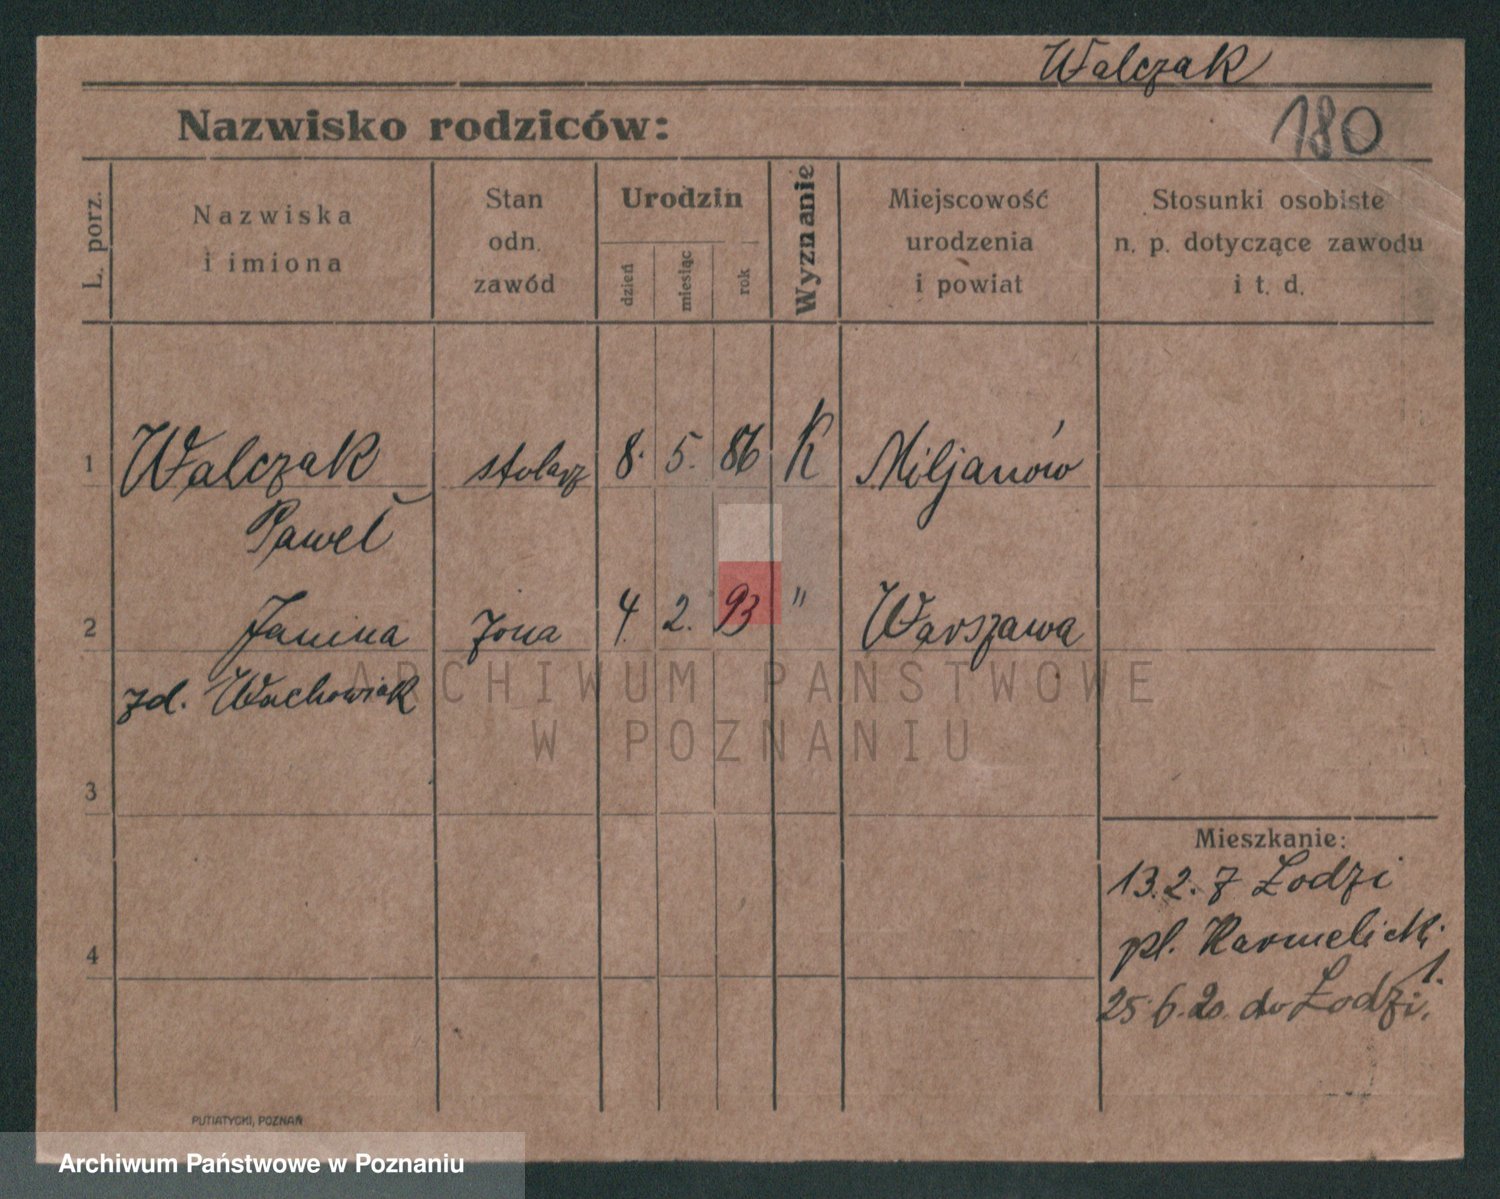 Walczak
180
Nazwisko rodziców:
L. porz.
Nazwiska
i imiona
Stan
odn.
zawód
Urodzin
dzień
miesiąc
rok
Wyznanie
Miejscowość
urodzenia
i powiat
Stosunki osobiste
n. p. dotyczące zawodu
i t. d.
1 Walczak stolarz 8. 5. 86 K Miljanów
Paweł
2 Janina żona 4. 2. 93 " Warszawa
zd. Wachowiak
ARCHIWUM PAŃSTWOWE
W POZNANIU
3
Mieszkanie:
13.2. z Łodzi
pl. Karmelicki
1.
4
25.6.20. do Łodzi.
PUTIATYCKI, POZNAŃ
Archiwum Państwowe w Poznaniu